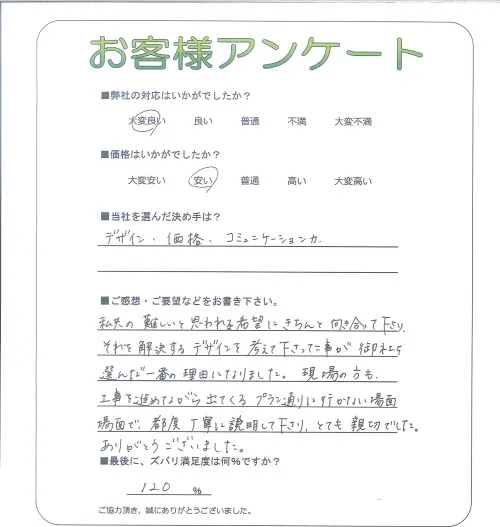 お客様アンケート
■弊社の対応はいかがでしたか?
大変良い 良い 普通 不満 大変不満
■価格はいかがでしたか?
大変安い 安い 普通 高い 大変高い
■当社を選んだ決め手は?
デザイン、価格、コミュニケーション力
■ご感想・ご要望などをお書き下さい。
私共の難しいと思われる希望にきちんと向き合って下さり、
それを解決するデザインを考えて下さった事が御社を
選んだ一番の理由になりました。現場の方も、
工事を進めながら出てくるプラン通りに行かない場面
場面で、都度丁寧に説明して下さり、とても親切でした。
ありがとうございました。
■最後に、ズバリ満足度は何%ですか?
120 %
ご協力頂き、誠にありがとうございました。